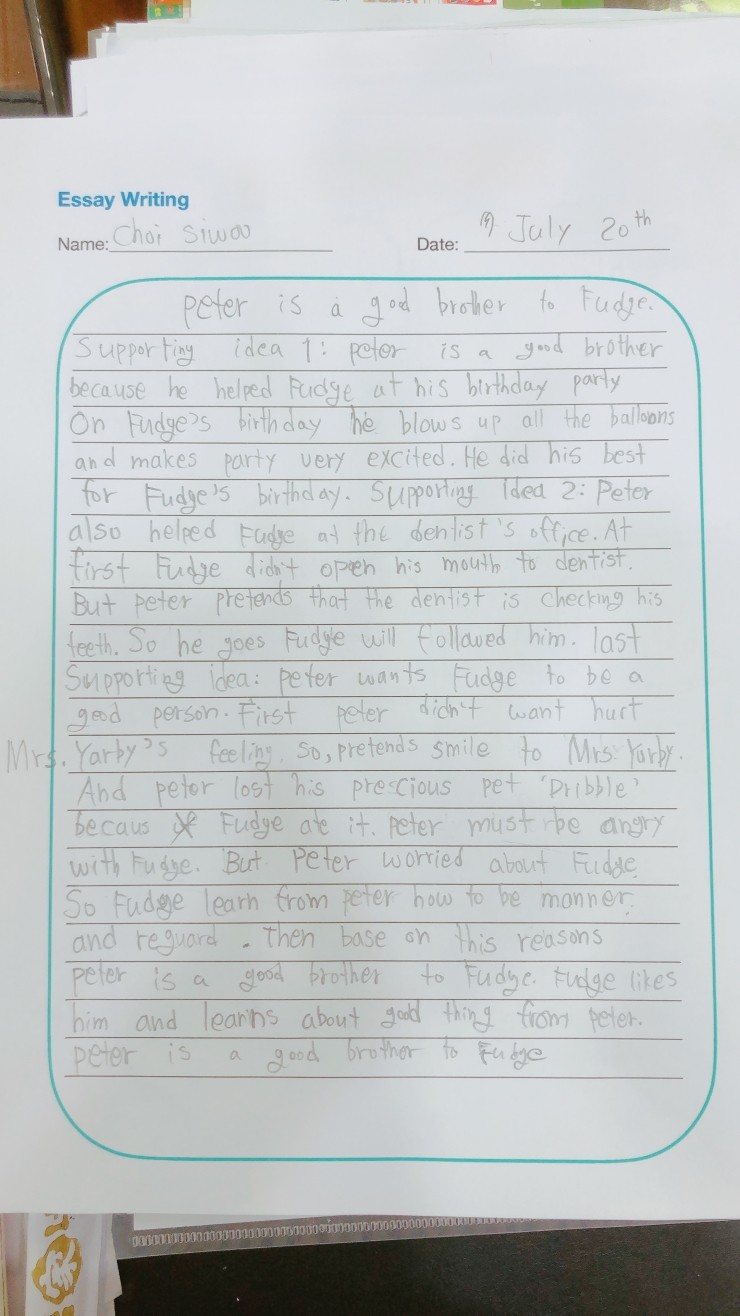 Essay Writing
Name: Choi Siwoo
Date: July 20th
Peter is a good brother to Fudge.
Supporting idea 1: peter is a good brother
because he helped Fudge at his birthday party
On Fudge's birthday he blows up all the balloons
and makes party very excited. He did his best
for Fudge's birthday. Supporting idea 2: Peter
also helped Fudge at the dentist's office. At
first Fudge didn't open his mouth to dentist.
But peter pretends that the dentist is checking his
teeth. So he goes Fudge will followed him. last
Supporting idea: peter wants Fudge to be a
good person. First peter didn't want hurt
Mrs. Yarby's feeling. So, pretends smile to Mrs. Yarby.
And peter lost his prescious pet 'Dribble'
becaus Fudge ate it. peter must be angry
with Fudge. But Peter worried about Fudge.
So Fudge learn from peter how to be manner.
and reguard. Then base on this reasons
peter is a good brother to Fudge. Fudge likes
him and learns about good thing from peter.
peter is a good brother to Fudge